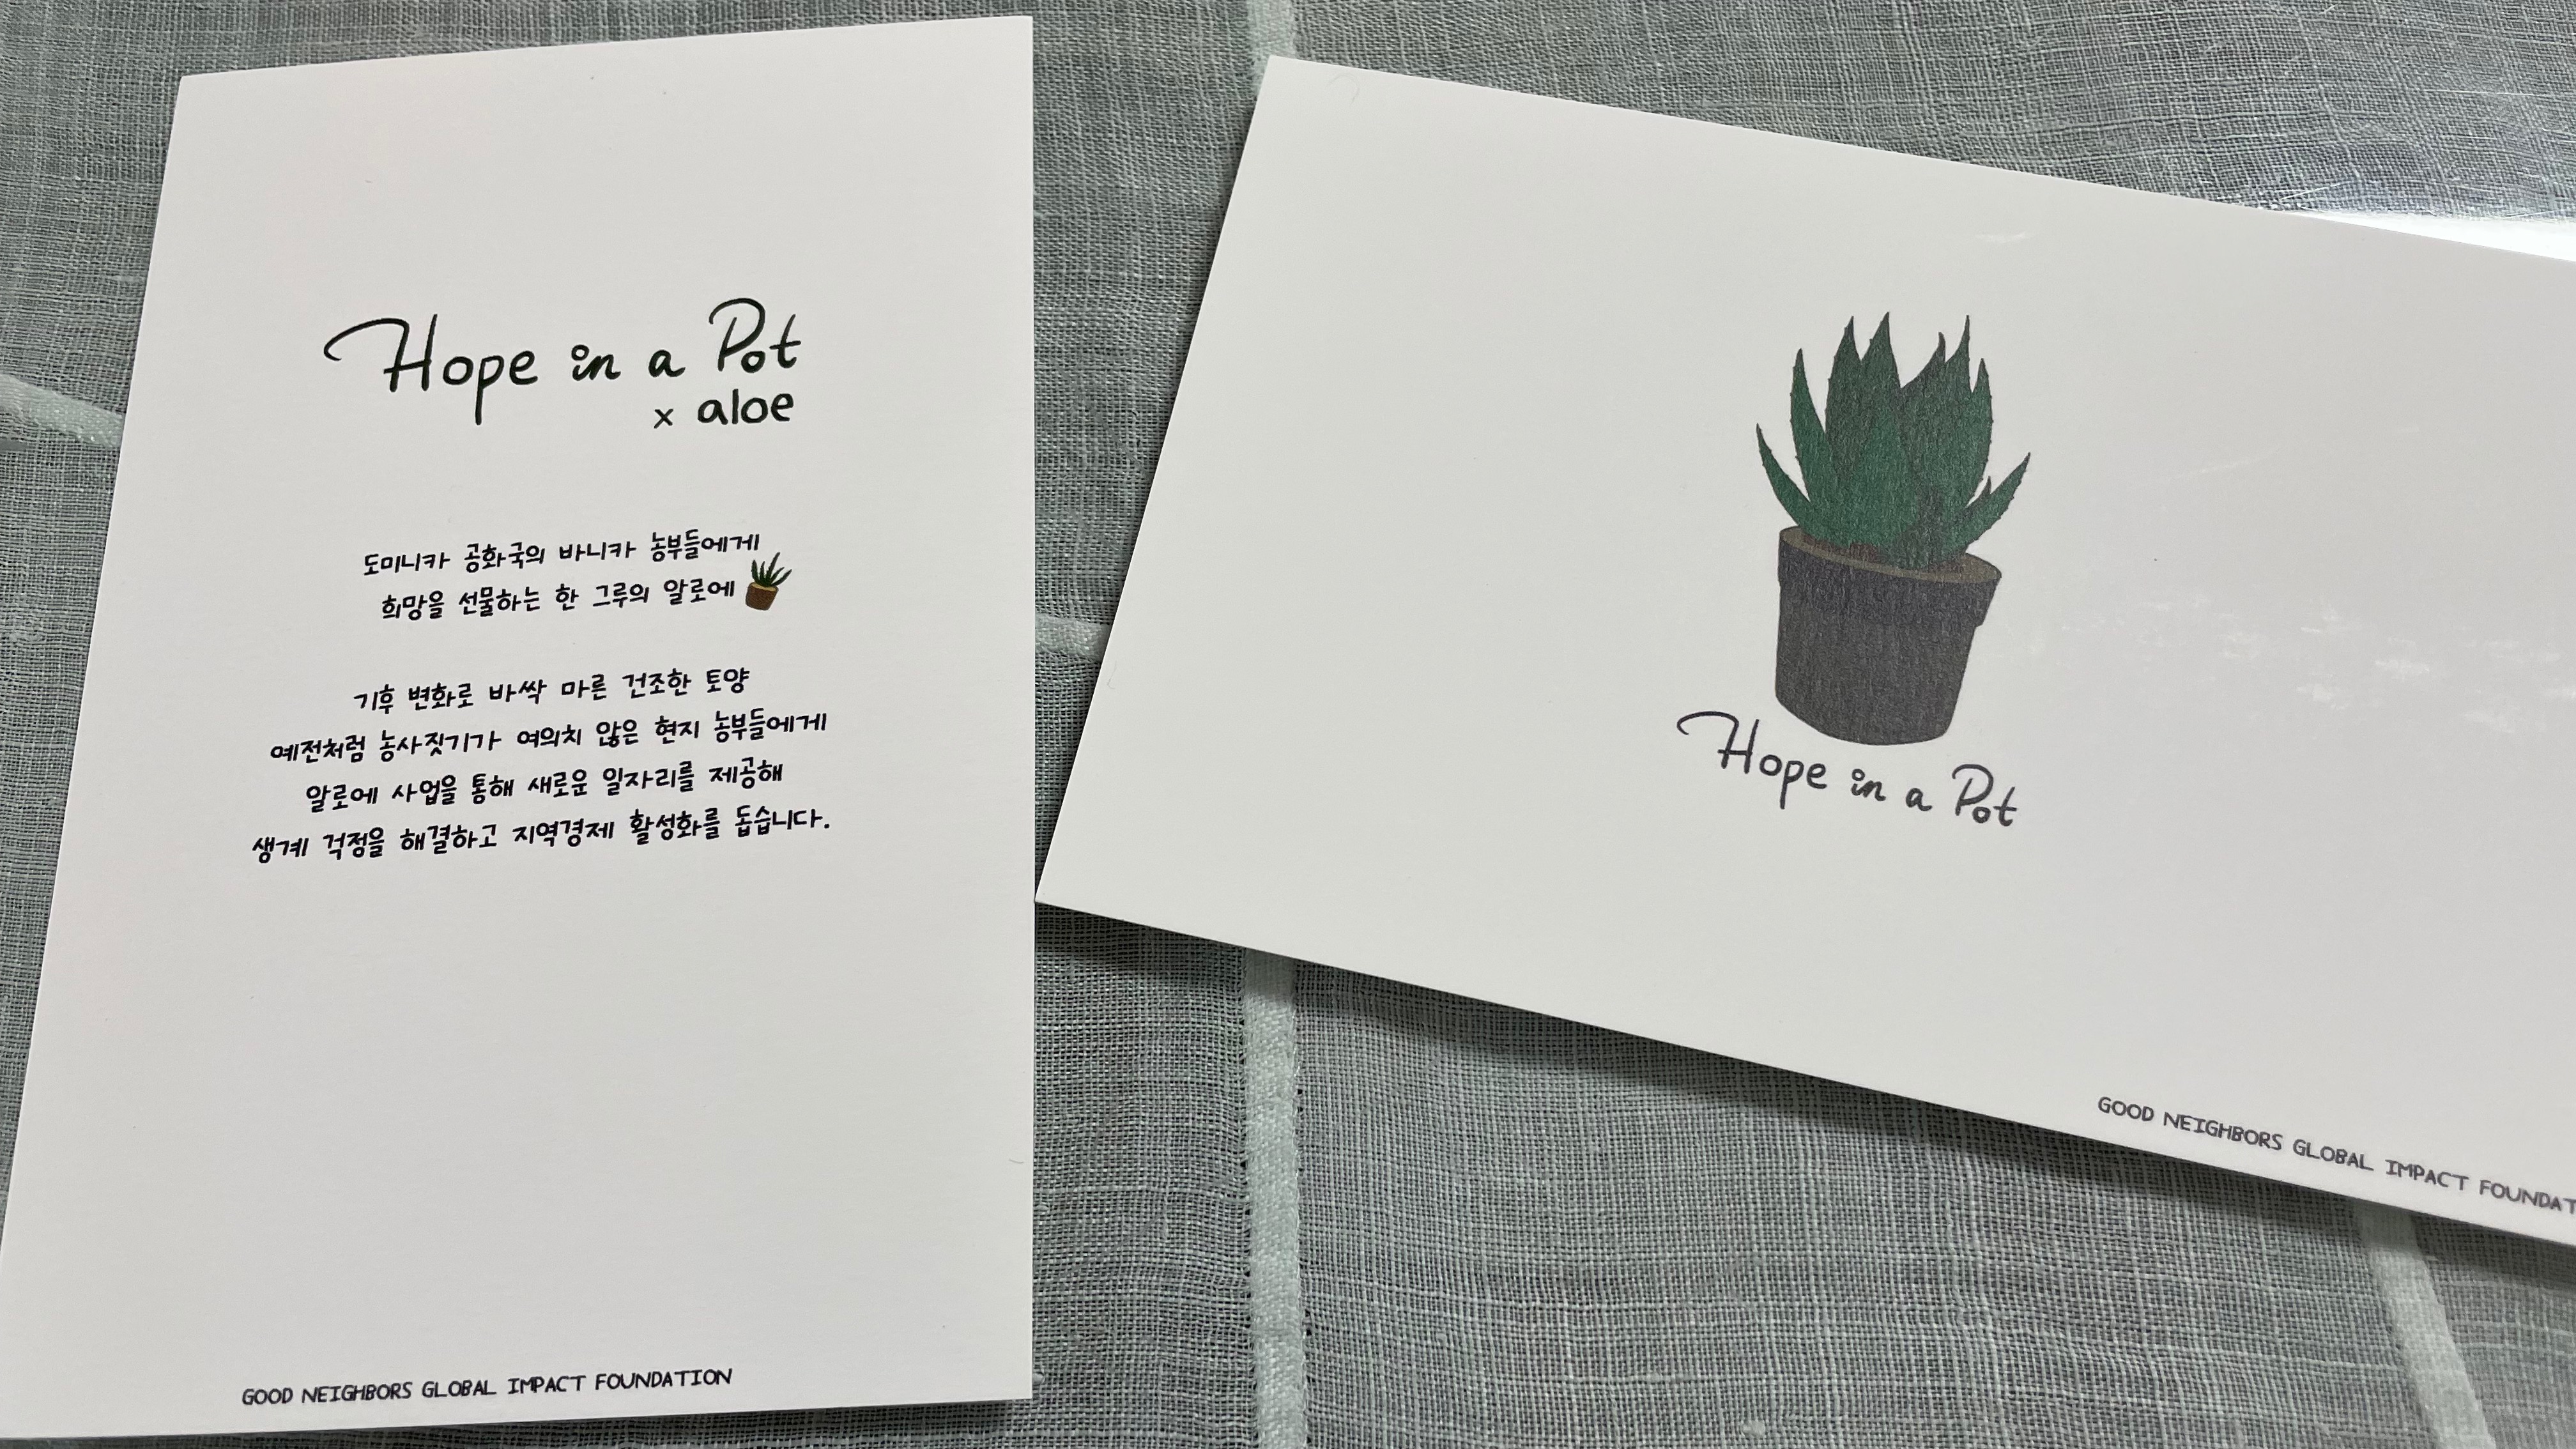 Hope in a Pot
x aloe
도미니카 공화국의 바니카 농부들에게
희망을 선물하는 한 그루의 알로에
기후 변화로 바싹 마른 건조한 토양
예전처럼 농사짓기가 여의치 않은 현지 농부들에게
알로에 사업을 통해 새로운 일자리를 제공해
생계 걱정을 해결하고 지역경제 활성화를 돕습니다.
GOOD NEIGHBORS GLOBAL IMPACT FOUNDATION
Hope in a Pot
GOOD NEIGHBORS GLOBAL IMPACT